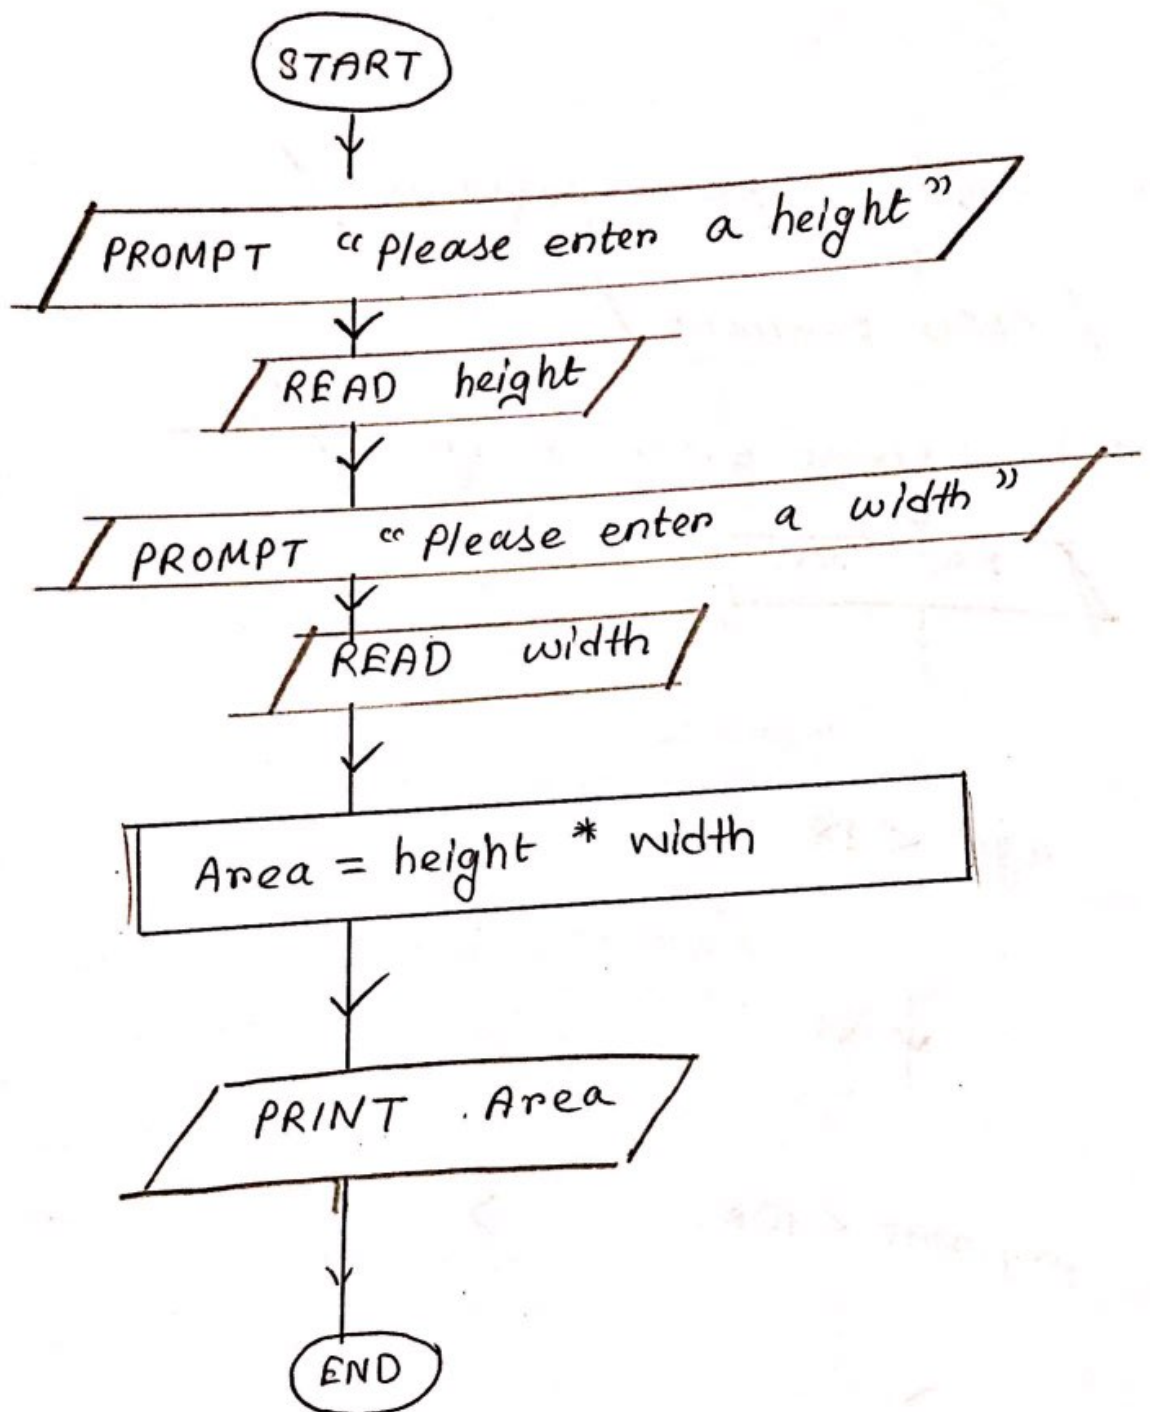 START
PROMPT “Please enter a height”
READ height
PROMPT “Please enter a width”
READ width
Area = height * width
PRINT Area
END